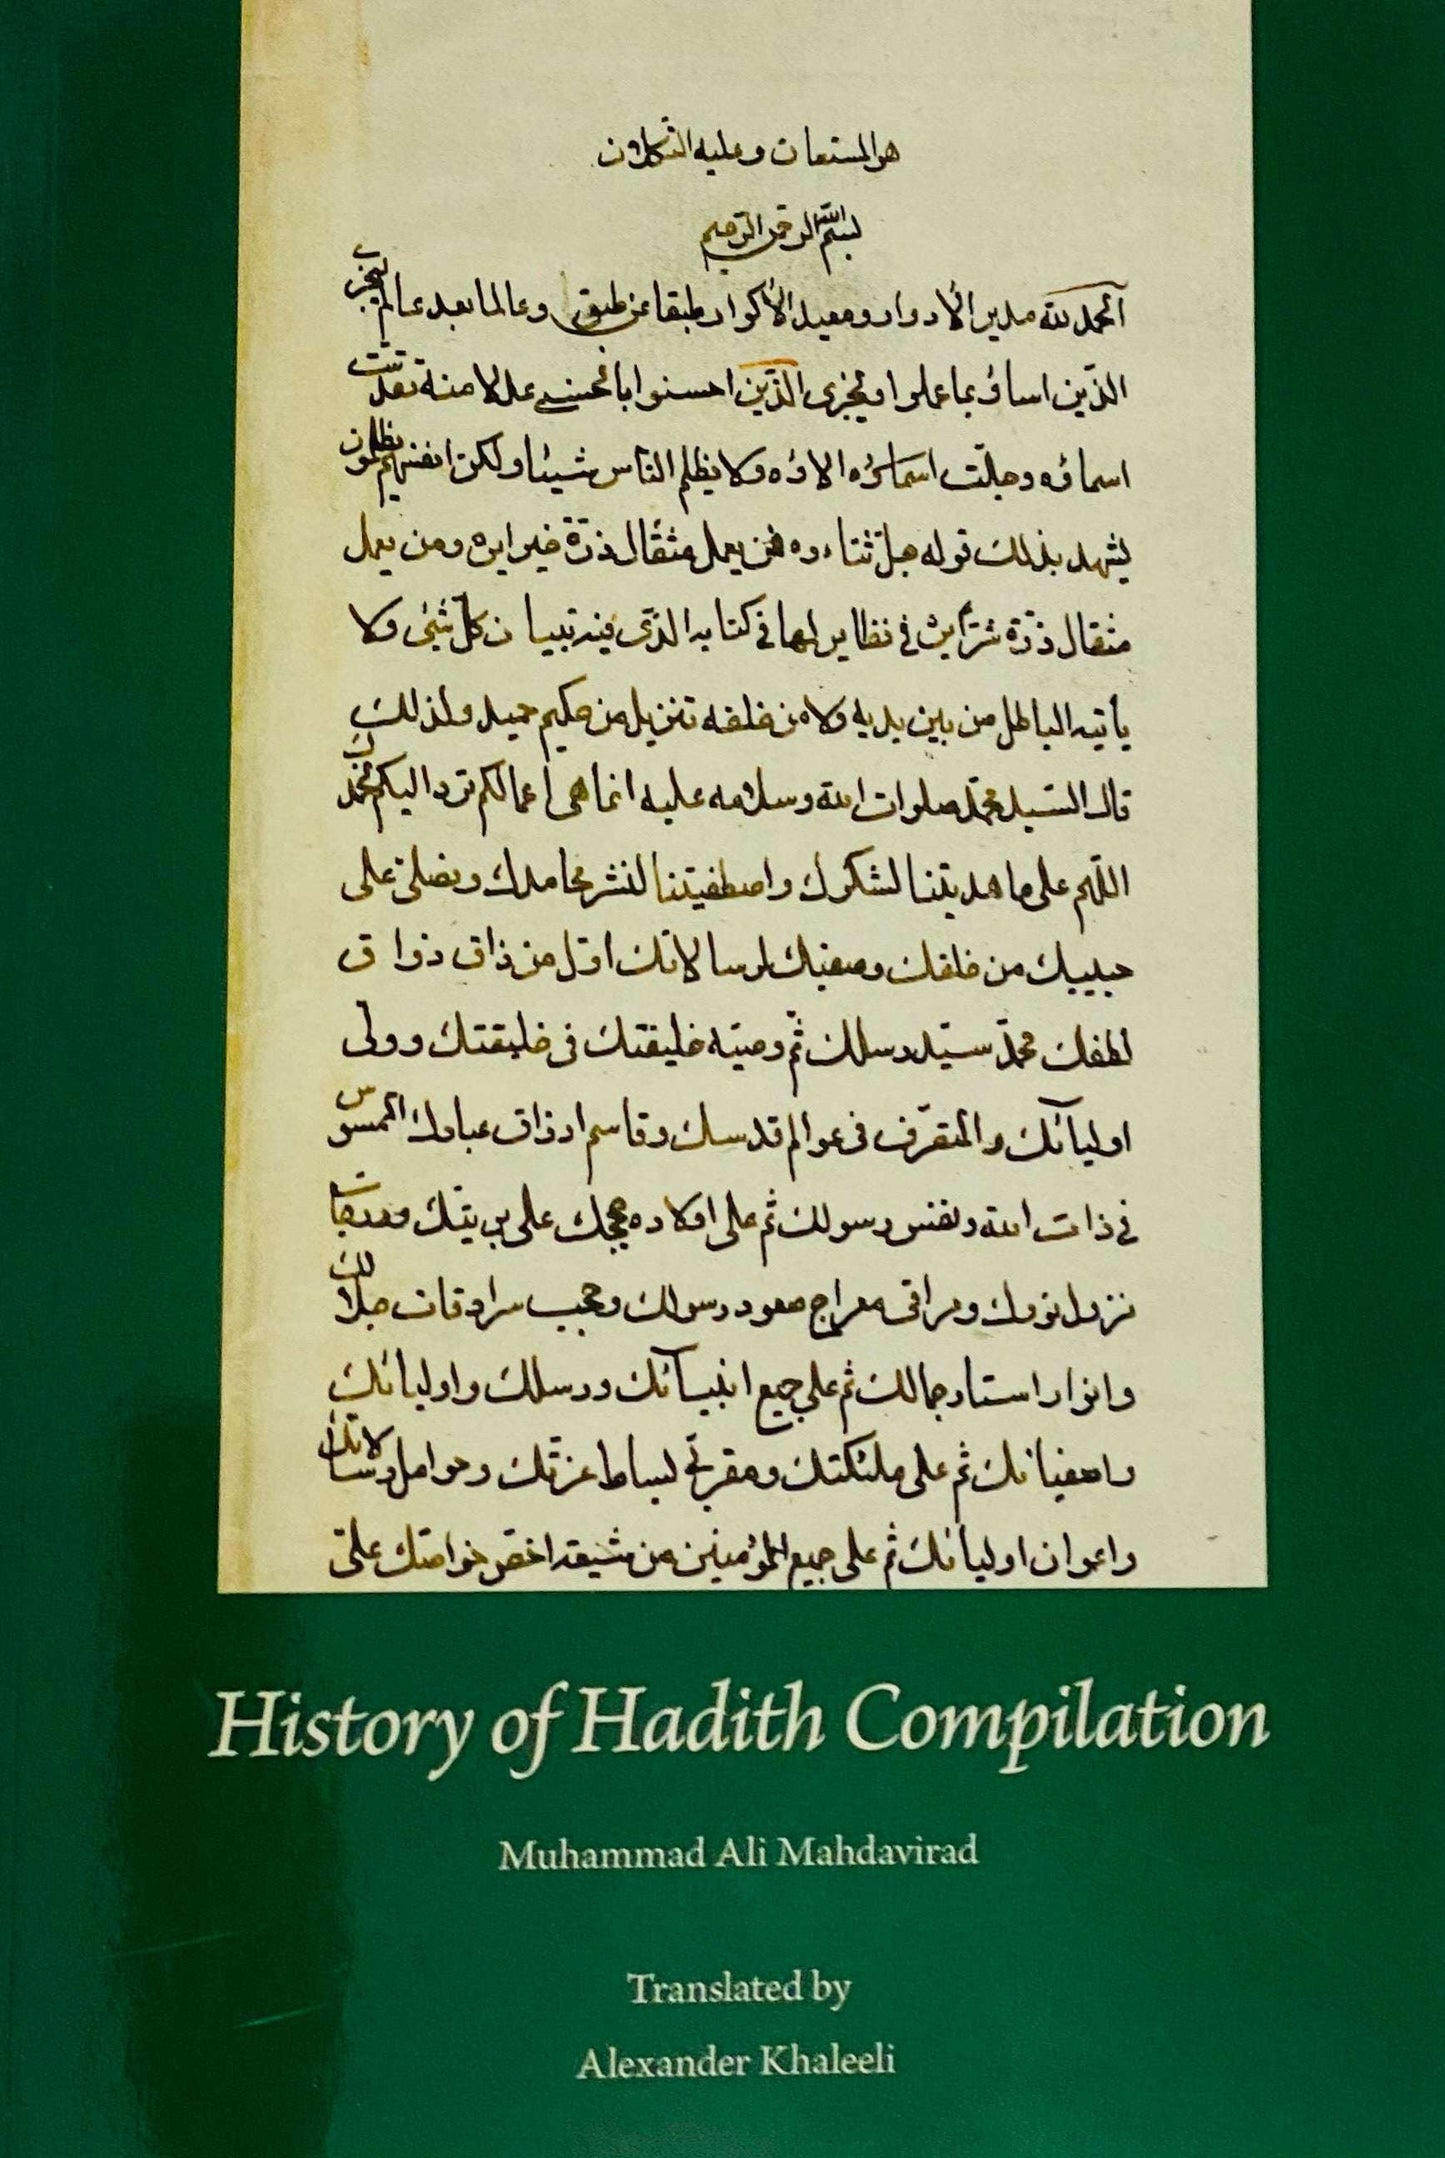 هو المستعان و عليه التكلان
بسم الله الرحمن الرحيم
الحمد لله مدير الأدوار و معيد الأكوار طبقا عن طبق و عالما بعد عالم ليجزى
الذين اساؤا بما عملوا و يجزى الذين احسنوا بالحسنى عدلا منه تقدست
اسماؤه و جلت الاؤه و لا يظلم الناس شيئا و لكن انفسهم يظلمون
يشهد بذلك قوله جل ثناءوه فمن يعمل مثقال ذرة خيرا يره و من يعمل
مثقال ذرة شرا يره فى نظاير لها فى كتابه الذى فيه تبيان كل شئى و لا
يأتيه الباطل من بين يديه و لا من خلفه تنزيل من حكيم حميد و لذلك
قال السيد محمد صلوات الله و سلامه عليه انما هى اعمالكم ترد اليكم نحمدك
اللهم على ما هديتنا لشكرك و اصطفيتنا لنشر محامدك و نصلى على
حبيبك من خلقك و صفيك لرسالاتك اول من ذاق ذواق
لطفك محمد سيد رسلك ثم وصيه خليفتك فى خليقتك و ولى
اوليائك و المتصرف فى عوالم قدسك و قاسم ارزاق عبادك الممسوس
فى ذات الله و نفس رسولك ثم على اولاده حججك على بريتك
نزول نورك و مراقى معراج صعود رسولك و حجب سرادقات جلالك
و انوار استار جمالك ثم على جميع انبيائك و رسلك و اوليائك
و اصفيائك ثم على ملئكتك و مقربى بساط عزتك و حوامل رسالاتك
و اعوان اوليائك ثم على جميع المؤمنين من شيعه اخص خواصك على
History of Hadith Compilation
Muhammad Ali Mahdavirad
Translated by
Alexander Khaleeli